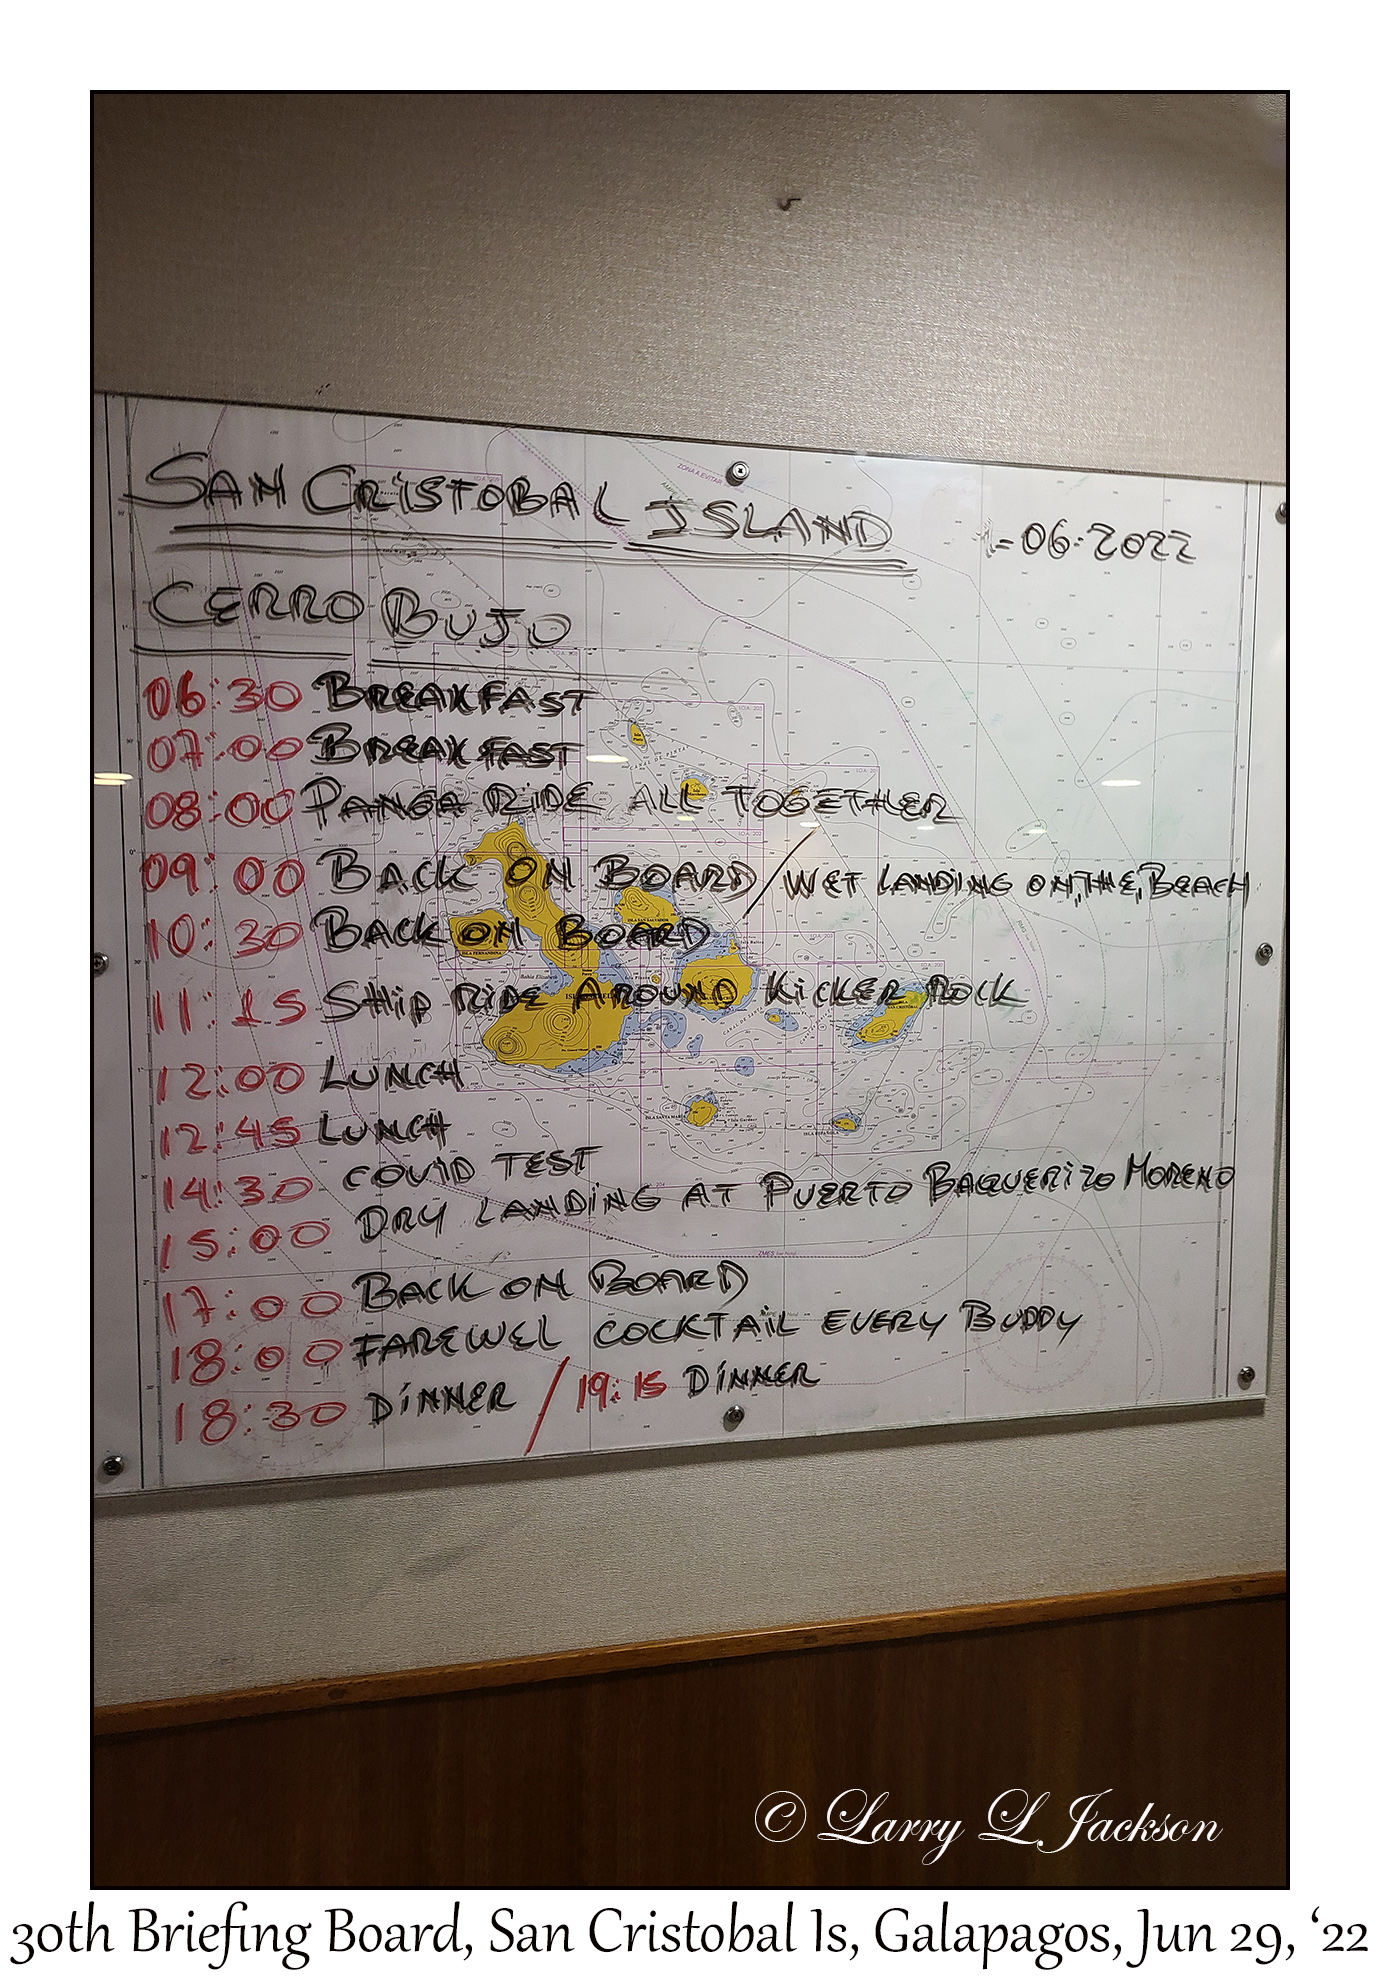 SAN CRISTOBAL ISLAND -06-2022
CERRO BUJO
06:30 BREAKFAST
07:00 BREAKFAST
08:00 PANGA RIDE ALL TOGETHER
09:00 BACK ON BOARD / WET LANDING ON THE BEACH
10:30 BACK ON BOARD
11:15 SHIP RIDE AROUND KICKER ROCK
12:00 LUNCH
12:45 LUNCH
14:30 COVID TEST
15:00 DRY LANDING AT PUERTO BAQUERIZO MORENO
17:00 BACK ON BOARD
18:00 FAREWEL COCKTAIL EVERY BUDDY
18:30 DINNER / 19:15 DINNER
© Larry L Jackson
30th Briefing Board, San Cristobal Is, Galapagos, Jun 29, ‘22